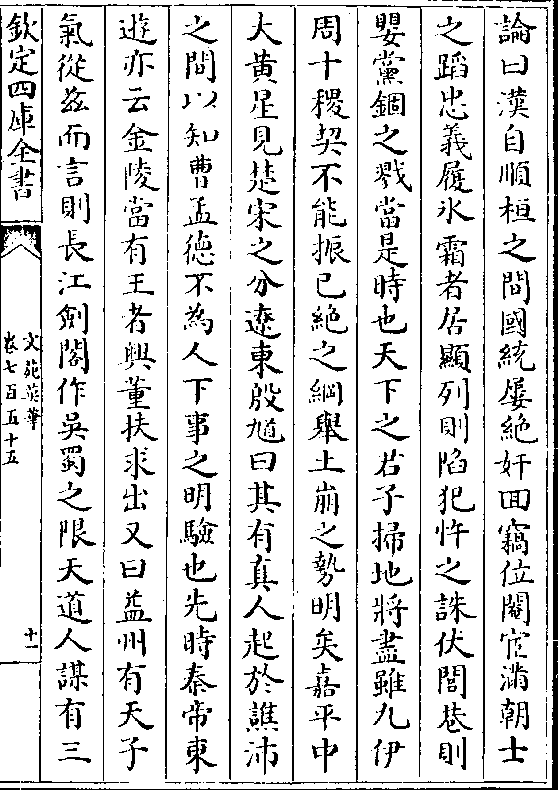 論曰漢自順桓之間國統屢絶奸回竊位閹宦滿朝士
之蹈忠義履氷霜者居顯列則陷犯忤之誅伏閭巷則
嬰黨錮之戮當是時也天下之君子掃地將盡雖九伊
周十稷契不能振已絶之綱舉土崩之勢明矣嘉平中
大黄星見楚宋之分遼東殷馗曰其有真人起於譙沛
之間以知曹孟德不為人下事之明驗也先時秦帝東
遊亦云金陵當有王者興董扶求出又曰益州有天子
氣從兹而言則長江劍閣作吳蜀之限天道人謀有三
欽定四庫全書
文苑英華
卷七百五十五
十一